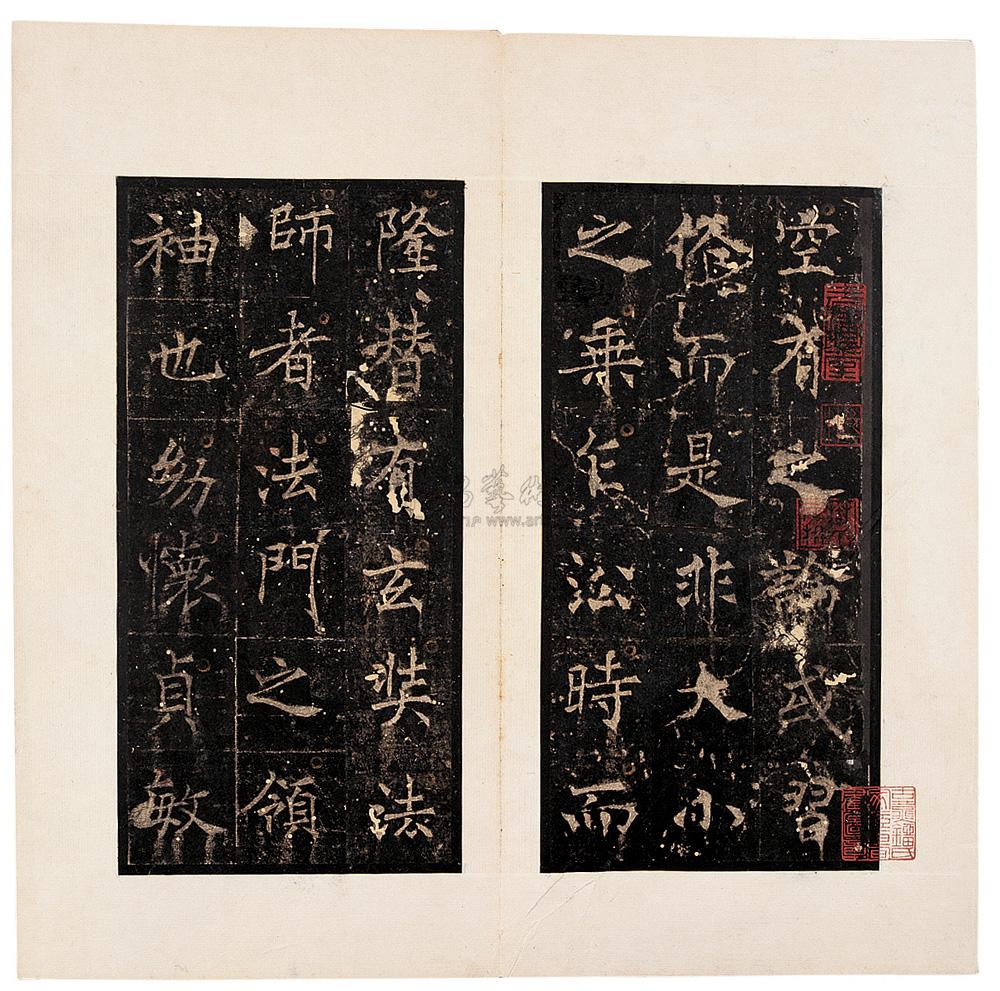 空有之論或習
俗而是非大小
之乗乍㳂時而
隆替有玄奘法
師者法門之領
袖也幼懷貞敏
www.ar